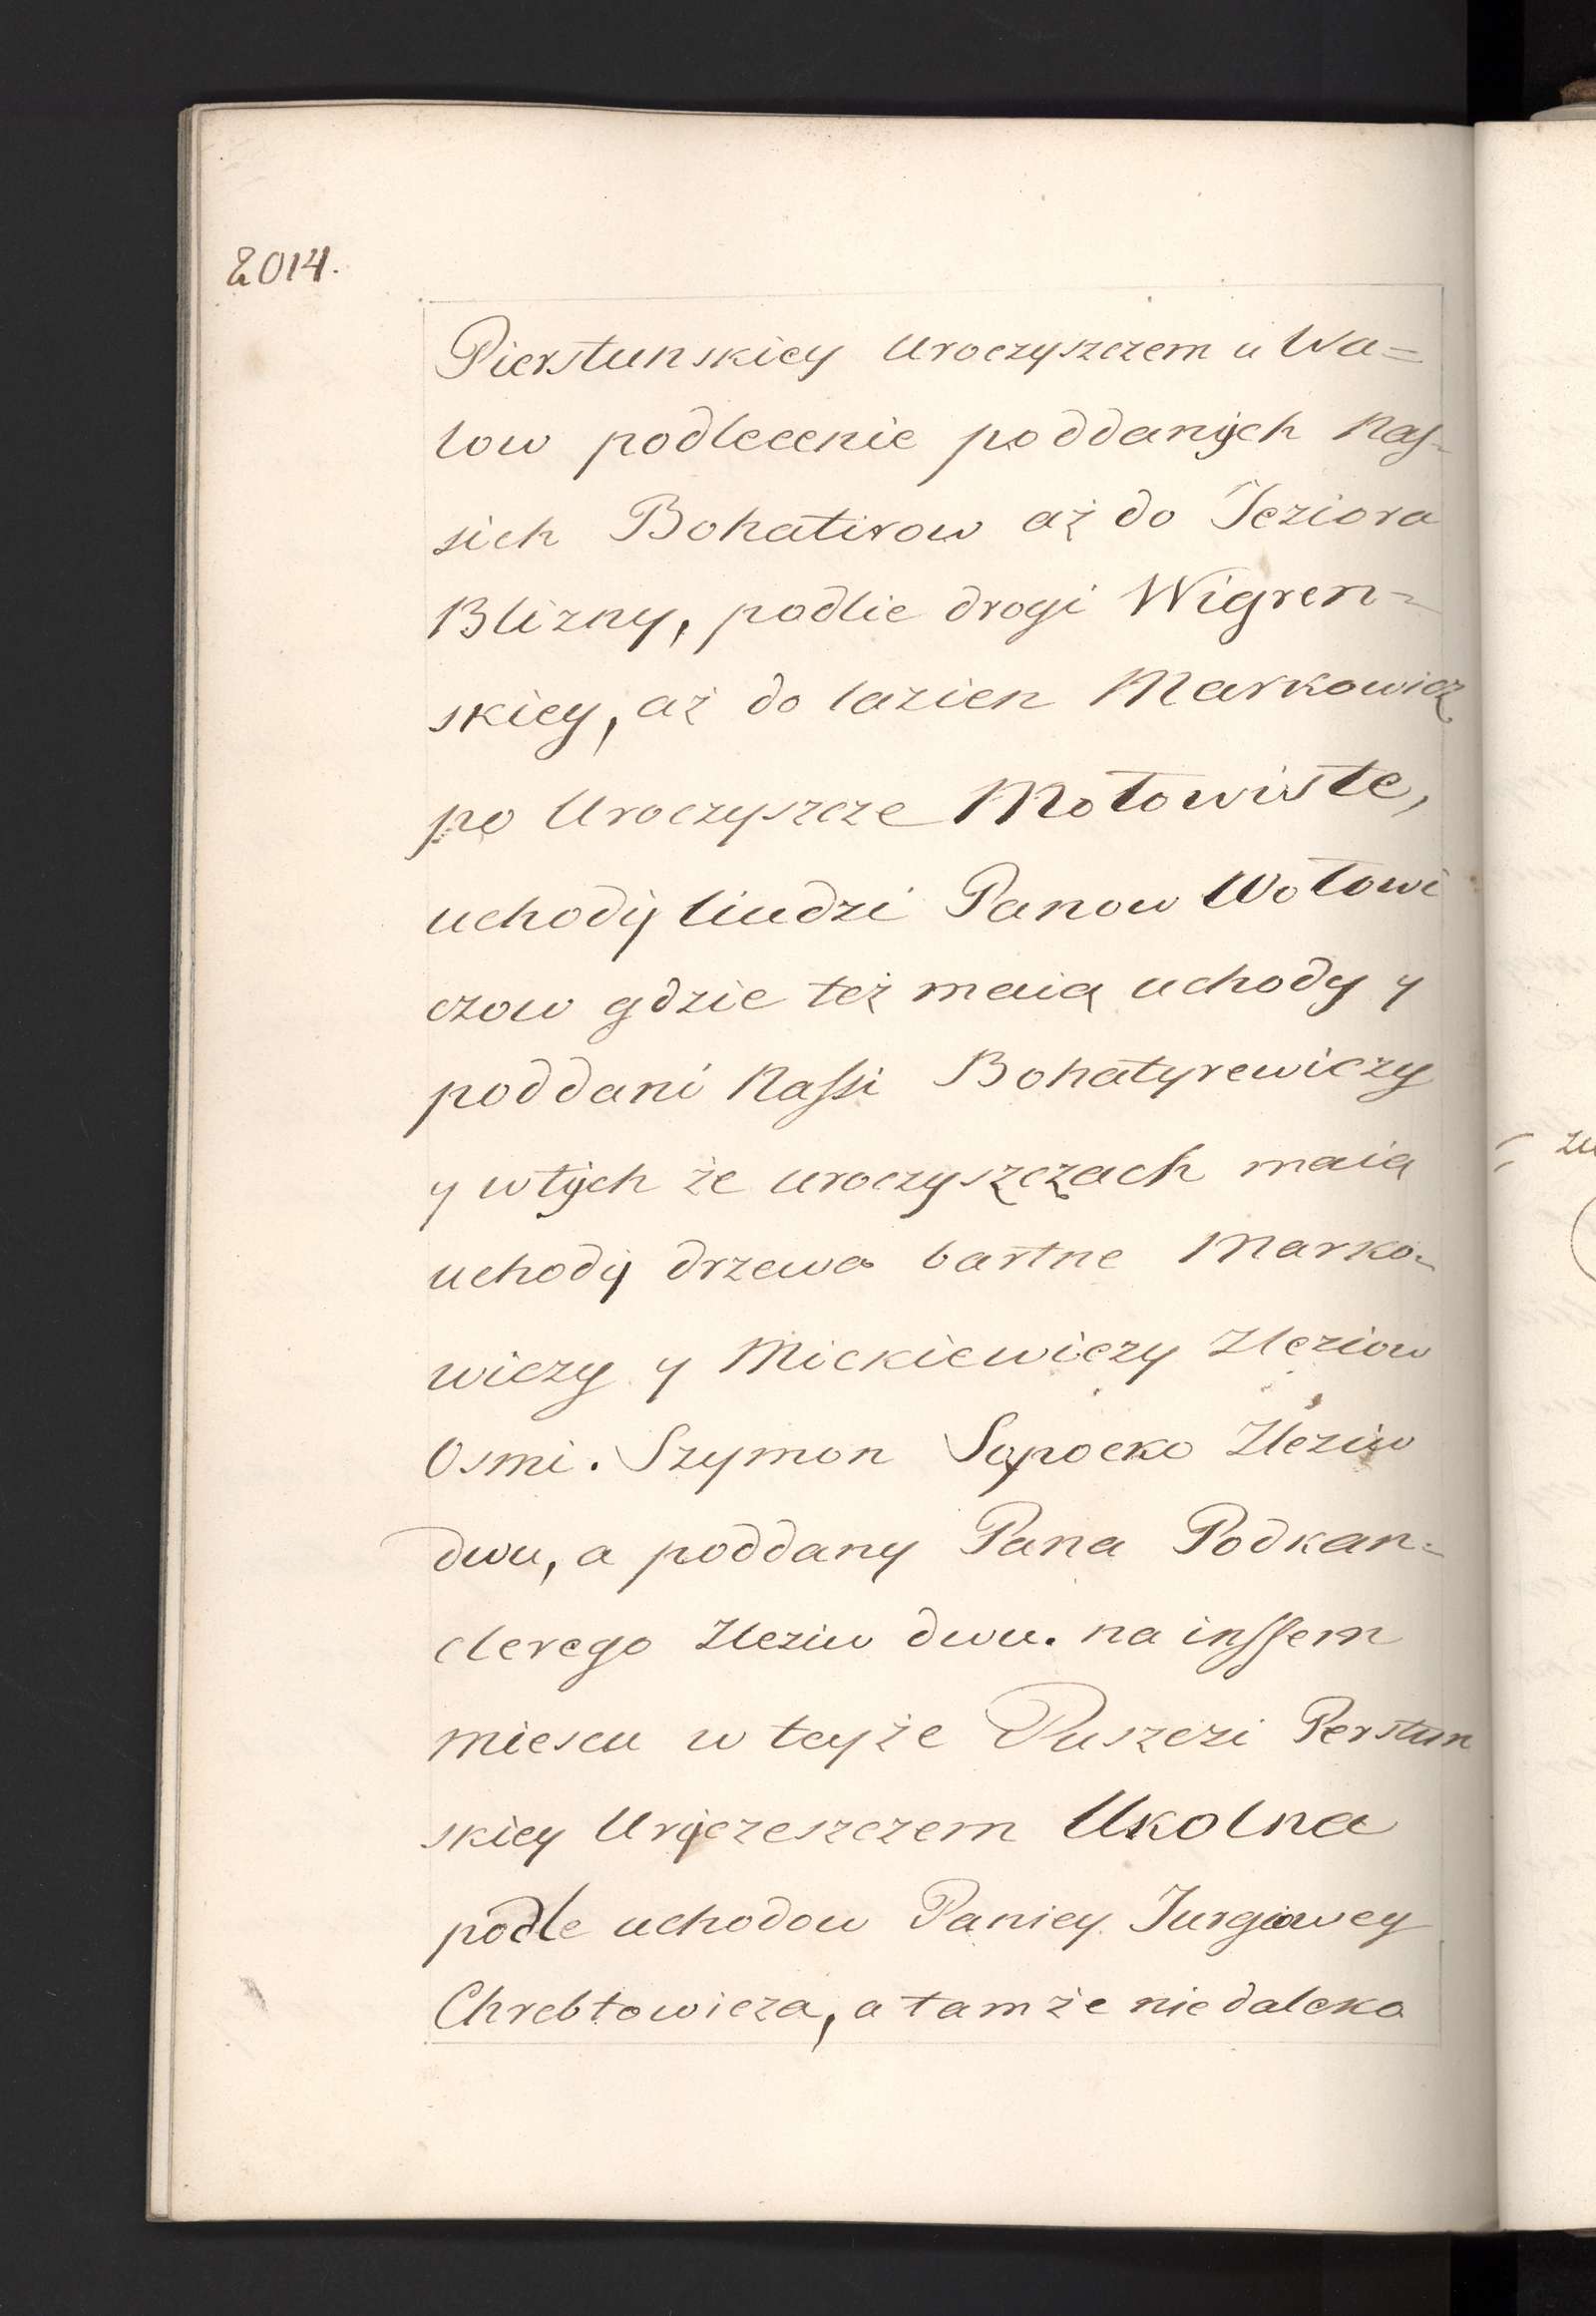 2014.
Pierstunskiey Uroczyszczem u Wa=
low podlecenie poddanych Nas-
sich Bohatirow aż do Jeziora
Blizny, podlie drogi Wigren-
skiey, aż do lazien Markowicz
po Uroczyszcze Motowiste,
uchody liudzi Panow Wołowi
czow gdzie też maią uchody y
poddani Nassi Bohatyrewiczy
y wtych że uroczyszczach maią
uchody drzewa bartne Marko-
wiczy y Mickiewiczy Zleziow
Osmi. Szymon Sopocko Zleziw
dwu, a poddany Pana Podkan-
clerego Zleziw dwu. na inssem
miescu w teyże Puszczi Perstun
skiey Uryczeszczem Ukolna
podle uchodow Paniey Jurgiowey
Chrebtowicza, a tamże niedaleko